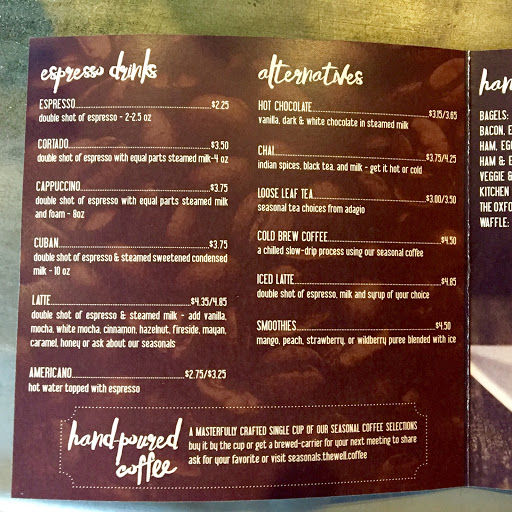 espresso drinks
ESPRESSO $2.25
double shot of espresso - 2-2.5 oz
CORTADO $3.50
double shot of espresso with equal parts steamed milk-4 oz
CAPPUCCINO $3.75
double shot of espresso with equal parts steamed milk
and foam - 8oz
CUBAN $3.75
double shot of espresso & steamed sweetened condensed
milk - 10 oz
LATTE $4.35/4.85
double shot of espresso & steamed milk - add vanilla,
mocha, white mocha, cinnamon, hazelnut, fireside, mayan,
caramel, honey or ask about our seasonals
AMERICANO $2.75/$3.25
hot water topped with espresso
alternatives
HOT CHOCOLATE $3.15/3.85
vanilla, dark & white chocolate in steamed milk
CHAI $3.75/4.25
indian spices, black tea, and milk - get it hot or cold
LOOSE LEAF TEA $3.00/3.50
seasonal tea choices from adagio
COLD BREW COFFEE $4.50
a chilled slow-drip process using our seasonal coffee
ICED LATTE $4.85
double shot of espresso, milk and syrup of your choice
SMOOTHIES $4.50
mango, peach, strawberry, or wildberry puree blended with ice
hand-poured
coffee
A MASTERFULLY CRAFTED SINGLE CUP OF OUR SEASONAL COFFEE SELECTIONS
buy it by the cup or get a brewed-carrier for your next meeting to share
ask for your favorite or visit seasonals.thewell.coffee
han
BAGELS:
BACON, E
HAM, EGG
HAM & E
VEGGIE &
KITCHEN
THE OXFO
WAFFLE: